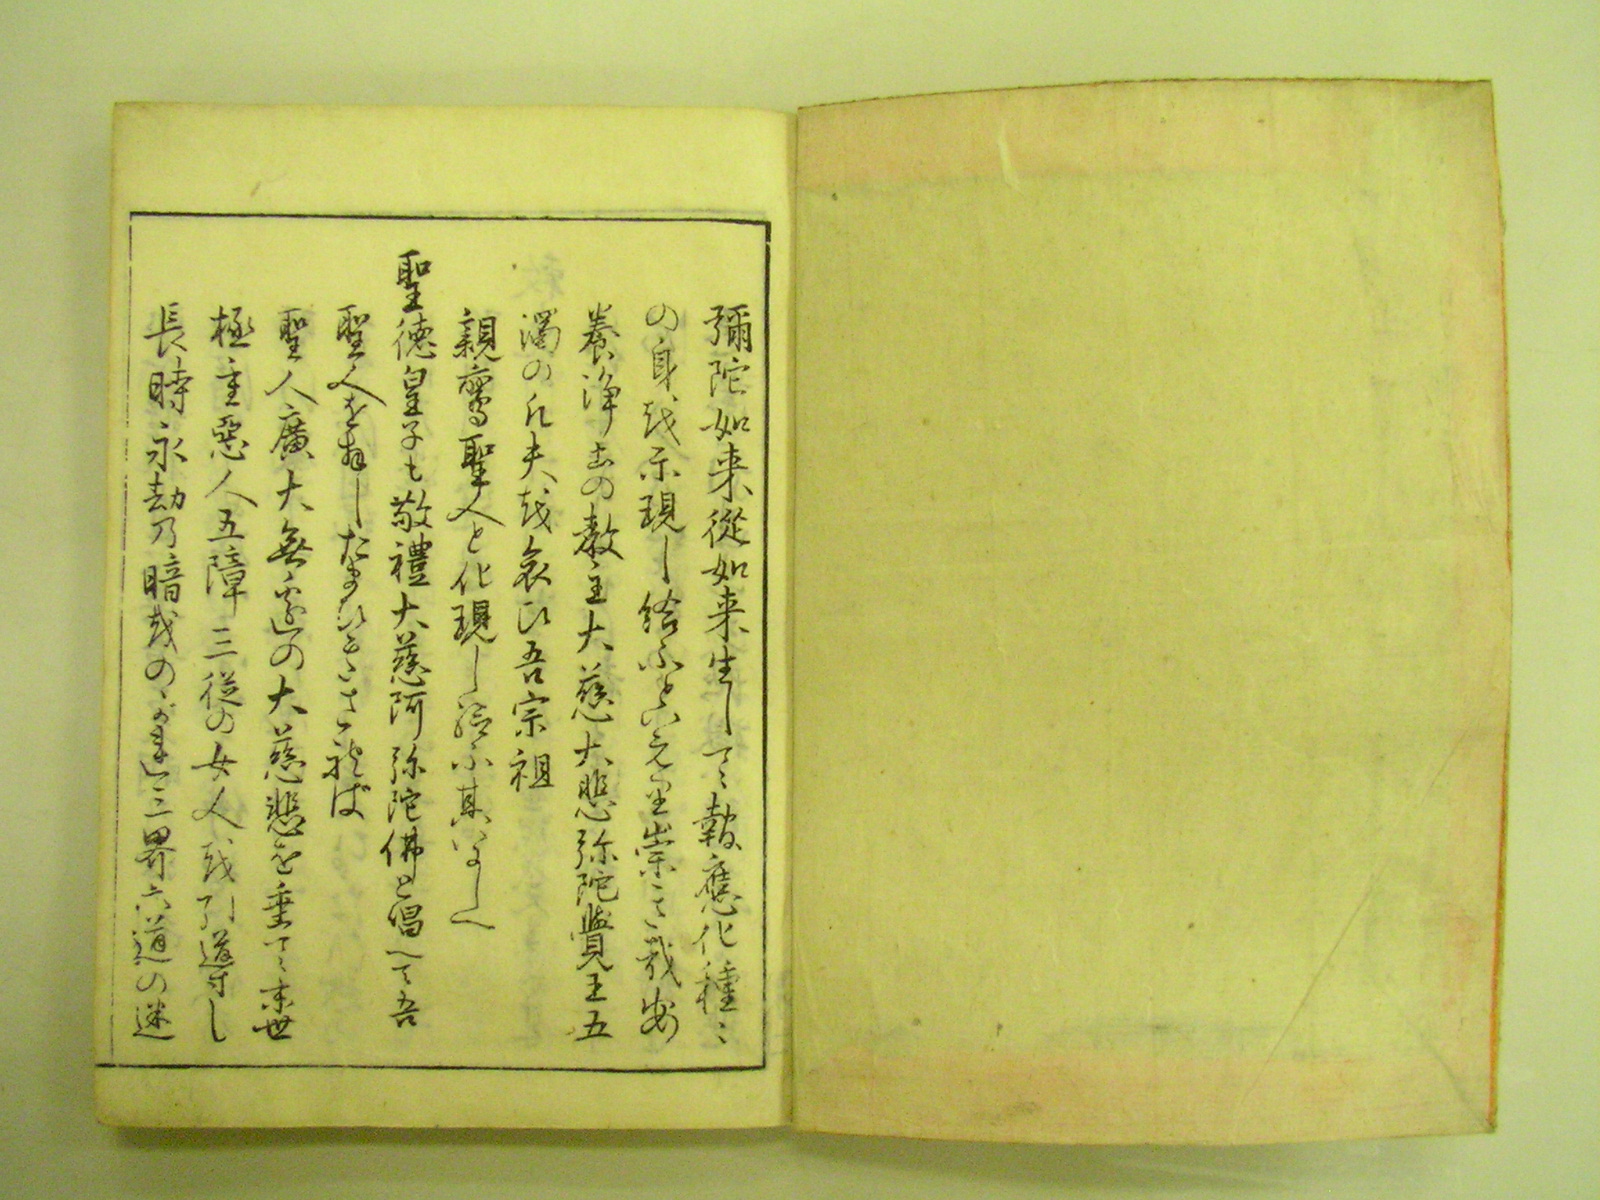 彌陀如来從如来生して報應化種々
の身越示現し給ふと宣り崇き哉安
養浄土の教主大慈大悲弥陀覺王五
濁の凡夫越哀ひ吾宗祖
親鸞聖人と化現し給ふ其いにしへ
聖徳皇子も敬禮大慈阿弥陀佛と唱へて吾
聖人を拝したまひき
聖人廣大無邊の大慈悲を垂て末世
極重悪人五障三従の女人越引導し
長時永劫乃暗越のがれ三界六道の迷